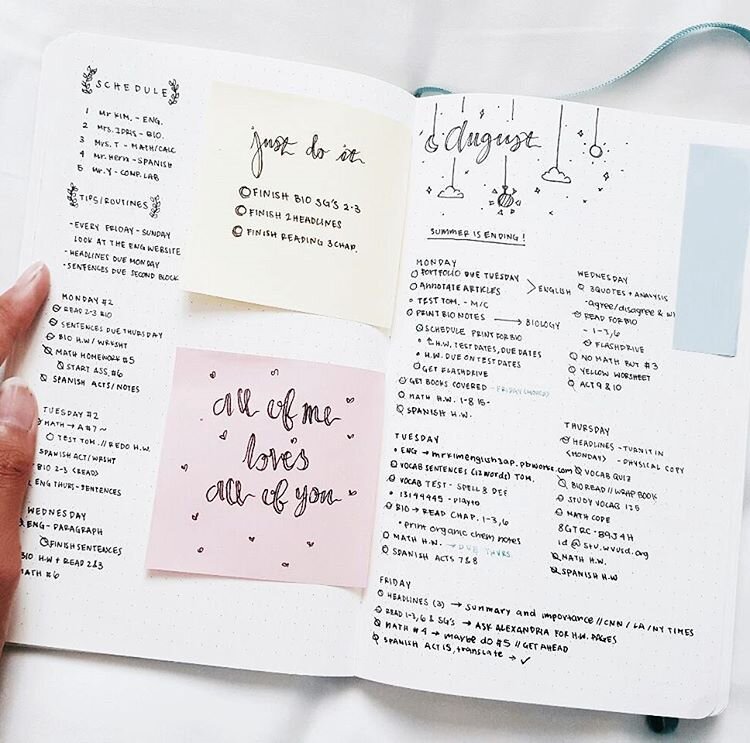 SCHEDULE
1 Mr KIM. - ENG.
2 Mrs. IDRIS - BIO.
3 Mrs. T - MATH/CALC
4 Mr. Hern - SPANISH
5 Mr. Y - COMP. LAB
TIPS/ROUTINES
- EVERY FRIDAY - SUNDAY
LOOK AT THE ENG WEBSITE
- HEADLINES DUE MONDAY
- SENTENCES DUE SECOND BLOCK
MONDAY #2
READ 2-3 BIO
SENTENCES DUE THURSDAY
BIO H.W/WRKSHT
MATH HOMEWORK #5
START ASS. #6
SPANISH ACTS/NOTES
TUESDAY #2
MATH → A#7 ~
TEST TOM. // REDO H.W.
SPANISH ACT/WRSHT
BIO 2-3 (READ)
ENG THURS - SENTENCES
WEDNESDAY
ENG - PARAGRAPH
FINISH SENTENCES
BIO H.W + READ 2&3
MATH #6
just do it
FINISH BIO SG'S 2-3
FINISH 2 HEADLINES
FINISH READING 3 CHAP.
all of me
loves
all of you
August
SUMMER IS ENDING!
MONDAY
PORTFOLIO DUE TUESDAY
ANNOTATE ARTICLES > ENGLISH
TEST TOM. - M/C
PRINT BIO NOTES → BIOLOGY
SCHEDULE PRINT FOR BIO
H.W, TEST DATES, DUE DATES
H.W. DUE ON TEST DATES
GET FLASHDRIVE
GET BOOKS COVERED - FRIDAY
MATH H.W. 1-8 15-
SPANISH H.W.
TUESDAY
ENG → mrkimenglish3ap.pbworks.com
VOCAB SENTENCES (12 words) TOM.
VOCAB TEST - SPELL & DEF
13199445 - playto
BIO → READ CHAP. 1-3, 6
print organic chem notes
MATH H.W. - DUE THURS.
SPANISH ACTS 7&8
WEDNESDAY
3 QUOTES + ANALYSIS
- agree/disagree &
READ FOR BIO
- 1-3, 6
FLASHDRIVE
NO MATH BUT #3
YELLOW WORSHEET
ACT 9 & 10
THURSDAY
HEADLINES - TURN IT IN
(MONDAY) - PHYSICAL COPY
VOCAB QUIZ
BIO READ // WRAP BOOK
STUDY VOCAB 125
MATH CODE
8GTRC - B9J4H
id @ stu.wvusd.org
MATH H.W.
SPANISH H.W
FRIDAY
HEADLINES (2) → summary and importance // CNN / LA / NY TIMES
READ 1-3, 6 & SG'S → ASK ALEXANDRIA FOR H.W. PAGES
MATH #4 → maybe do #5 // GET AHEAD
SPANISH ACT 15, translate → ✓